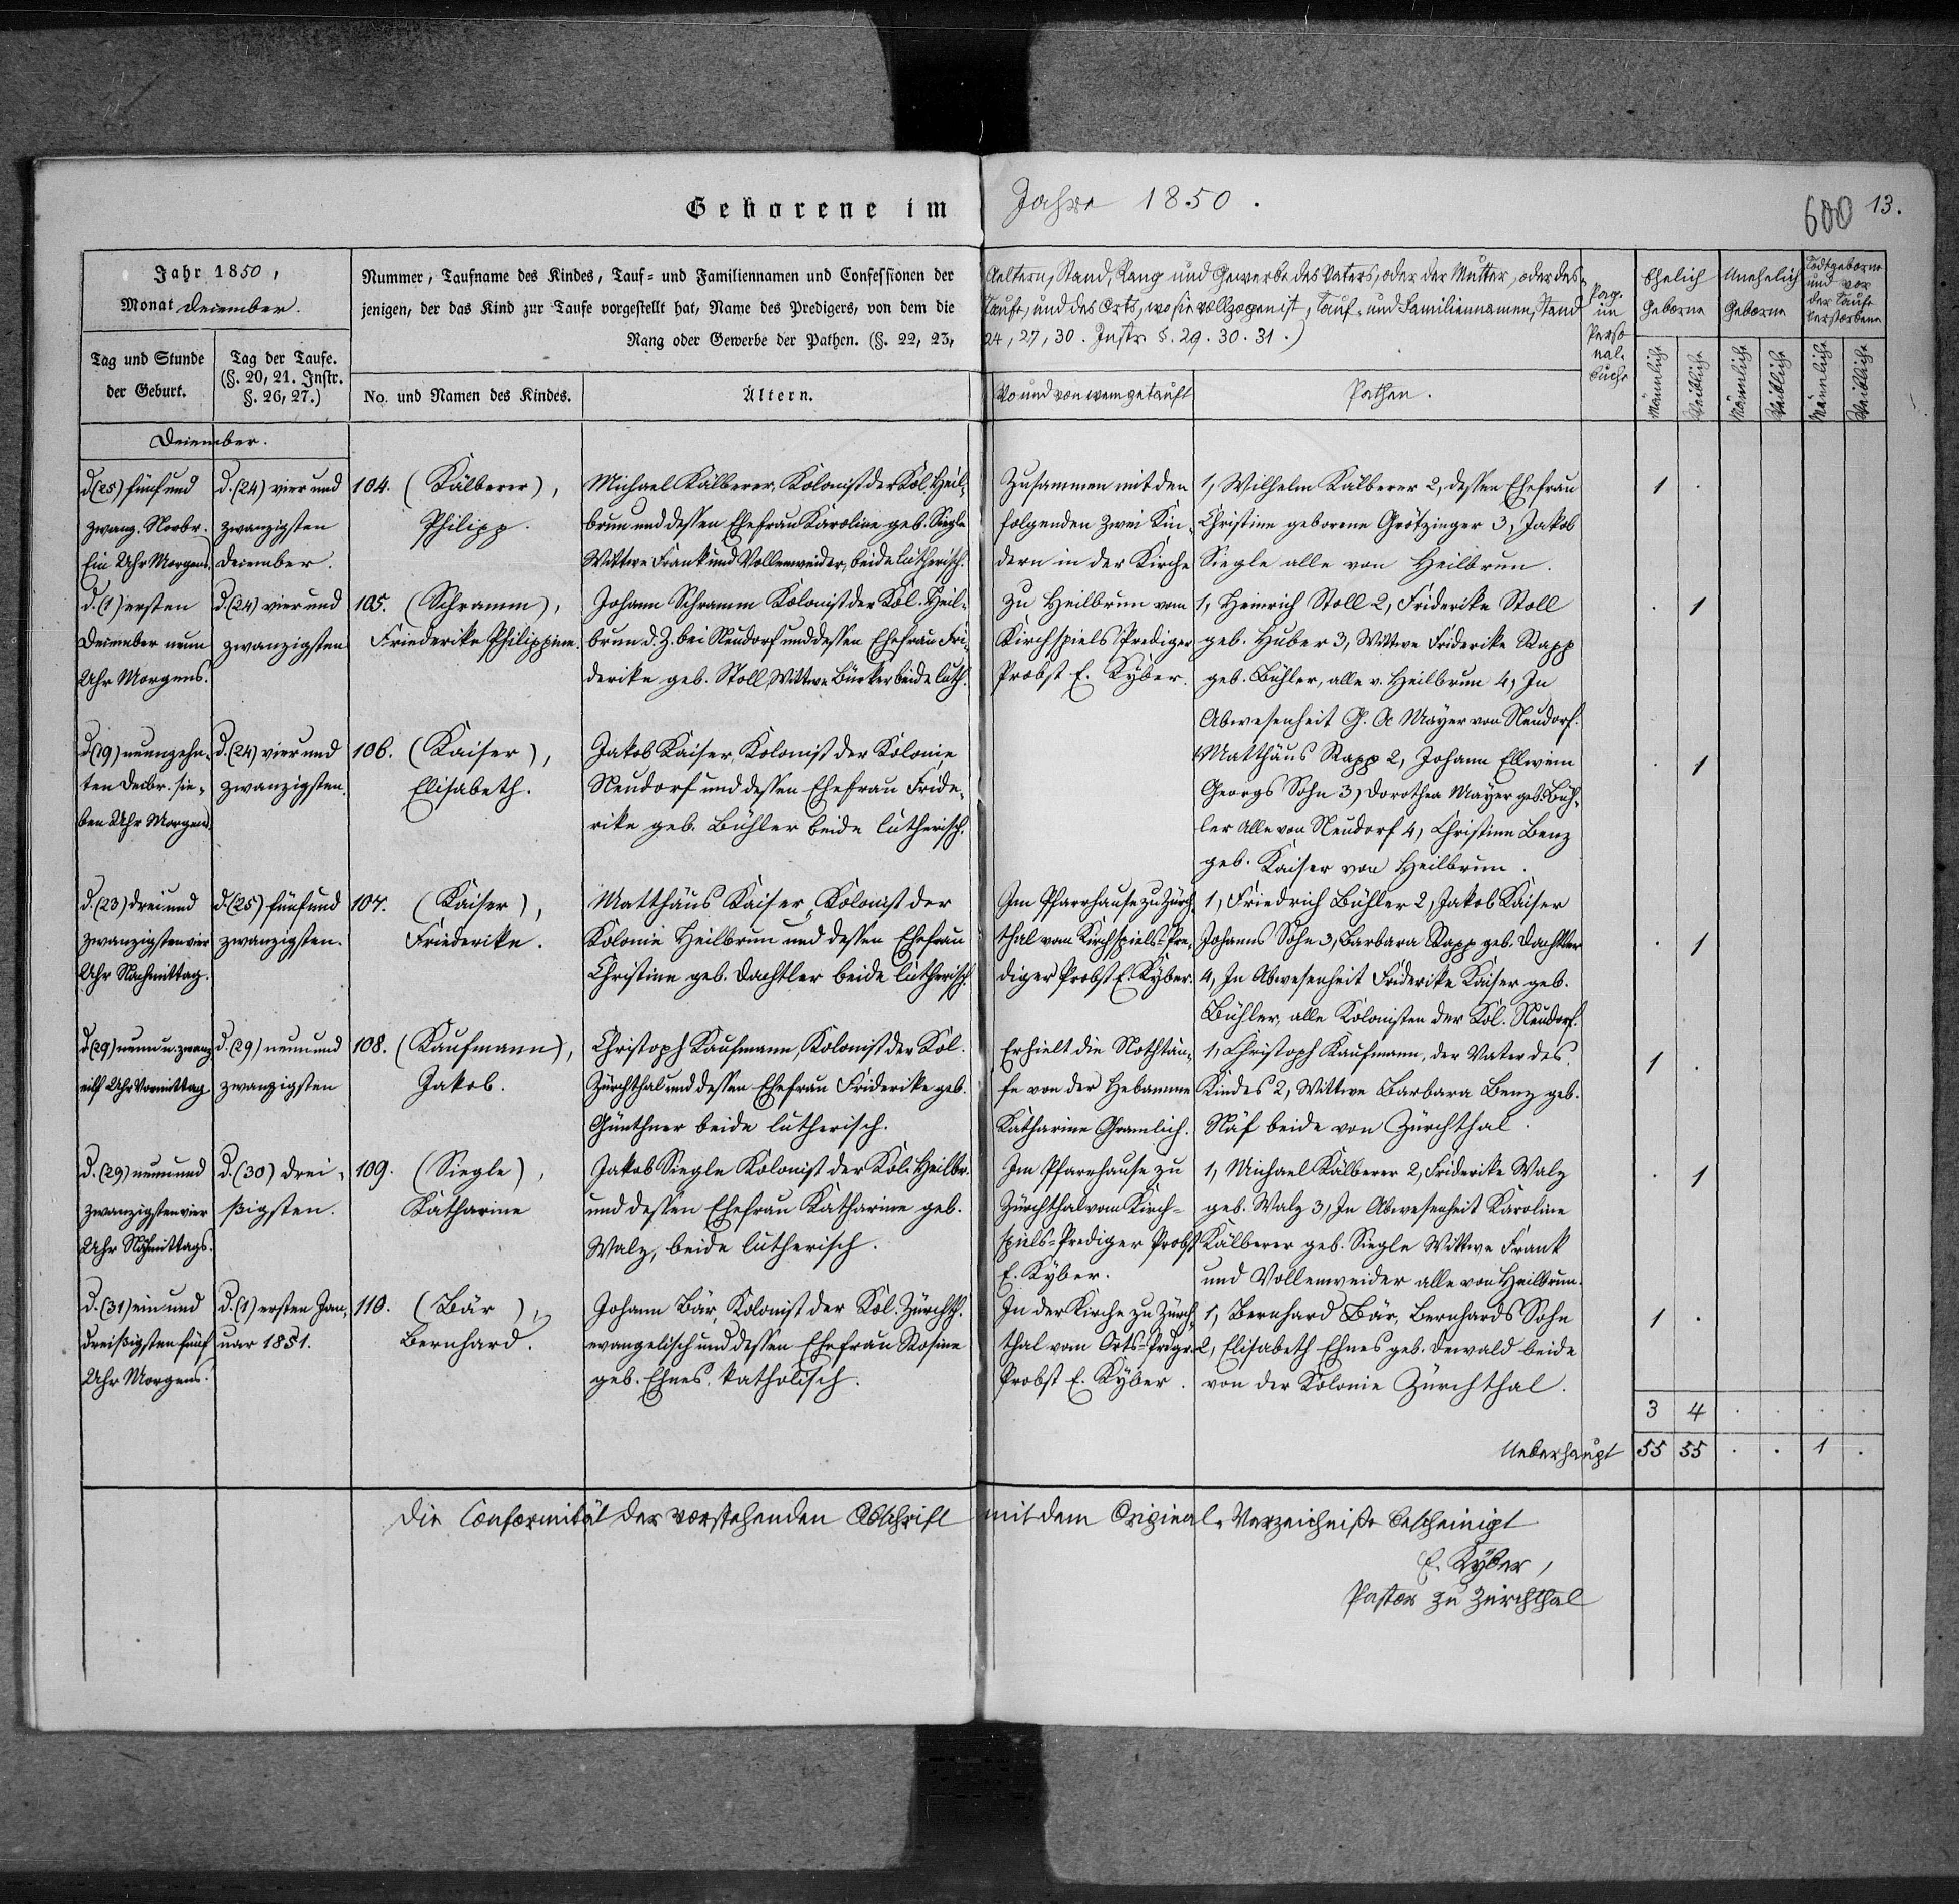 Geborene im Jahre 1850.
600 13.
Jahr 1850,
Monat December.
Tag und Stunde
der Geburt.
Tag der Taufe.
(§. 20, 21. Instr.
§. 26, 27.)
Nummer, Taufname des Kindes, Tauf- und Familiennamen und Confessionen der
jenigen, der das Kind zur Taufe vorgestellt hat, Name des Predigers, von dem die
Rang oder Gewerbe der Pathen. (§. 22, 23,
No. und Namen des Kindes.
Ältern.
Aeltern, Stand, Rang und Gewerbe des Vaters, oder der Mutter, oder des-
Taufe, und des Orts, wo sie vollzogen ist, Tauf- und Familiennamen, Stand
24, 27, 30. Instr. §. 29. 30. 31.)
Wo und von wem getauft
Pathen.
Pag.
im
Perso
nal-
buche
Ehelich
Geborne
Unehelich
Geborne
Todtgeborne
und vor
der Taufe
Verstorbene
Männliche
Weibliche
Männliche
Weibliche
Männliche
Weibliche
December.
d. (25) fünf und
zwanz. Novbr.
Ein Uhr Morgens.
d. (24) vier und
zwanzigsten
December.
104. (Kälberer),
Philipp.
Michael Kälberer, Kolonist der Kol. Heil-
brun und dessen Ehefrau Karoline geb. Siegle
Wittwe Frank und Vollenweider, beide lutherisch.
Zusammen mit den
folgenden zwei Kin-
dern in der Kirche
1, Wilhelm Kälberer 2, dessen Ehefrau
Christine geborene Grötzinger 3, Jakob
Siegle alle von Heilbrun.
1 .
d. (1) ersten
December neun
Uhr Morgens.
d. (24) vier und
zwanzigsten
105. (Schramm),
Friederike Philippine.
Johann Schramm Kolonist der Kol. Heil-
brun d. Z. bei Neudorf und dessen Ehefrau Fri-
derike geb. Stoll Wittwe Bürker beide luth.
zu Heilbrun vom
Kirchspiels-Prediger
Probst E. Kyber.
1, Heinrich Stoll 2, Friderike Stoll
geb. Huber 3, Wittwe Friderike Rapp
geb. Bühler, alle v. Heilbrun 4, In
Abwesenheit G. A Mayer von Neudorf.
. 1
d. (19) neunzehn-
ten Decbr. sie-
ben Uhr Morgens.
d. (24) vier und
zwanzigsten.
106. (Kaiser),
Elisabeth.
Jakob Kaiser, Kolonist der Kolonie
Neudorf und dessen Ehefrau Fride-
rike geb. Bühler beide lutherisch.
1 Matthäus Rapp 2, Johann Ellwein
Georgs Sohn 3, Dorothea Mayer geb. Büh-
ler Alle von Neudorf 4, Christine Benz
geb. Kaiser von Heilbrun.
. 1
d. (23) drei und
zwanzigsten vier
Uhr Nachmittag.
d. (25) fünf und
zwanzigsten.
107. (Kaiser),
Friederike.
Matthäus Kaiser, Kolonist der
Kolonie Heilbrun und dessen Ehefrau
Christine geb. Dachtler beide lutherisch.
Im Pfarrhause zu Zürch-
thal vom Kirchspiels-Pre-
diger Probst E. Kyber.
1, Friedrich Bühler 2, Jakob Kaiser
Johanns Sohn 3, Barbara Rapp geb. Dachtler
4, In Abwesenheit Friderike Kaiser geb.
Bühler, alle Kolonisten der Kol. Neudorf.
. 1
d (29) neun u. zwanz
eilf Uhr Vormittag
d. (29) neun und
zwanzigsten
108. (Kaufmann),
Jakob.
Christoph Kaufmann, Kolonist der Kol.
Zürchthal und dessen Ehefrau Friderike geb.
Günthner beide lutherisch.
Erhielt die Nothtau-
fe von der Hebamme
Katharine Gramlich.
1, Christoph Kaufmann, der Vater des
Kindes 2, Wittwe Barbara Benz geb.
Näf beide von Zürchthal.
1 .
d. (29) neun und
zwanzigsten vier
Uhr Nchmittags.
d. (30) drei-
ßigsten.
109. (Siegle),
Katharine
Jakob Siegle Kolonist der Kol. Heilbr.
und dessen Ehefrau Katharine geb.
Walz, beide lutherisch.
Im Pfarrhause zu
Zürchthal vom Kirch-
spiels-Prediger Probst
E. Kyber.
1, Michael Kälberer 2, Friderike Walz
geb. Walz 3, In Abwesenheit Karoline
Kälberer geb. Siegle Wittwe Frank
und Vollenweider alle von Heilbrun.
. 1
d. (31) ein und
dreißigsten fünf
Uhr Morgens.
d. (1) ersten Jan-
uar 1851.
110. (Bär),
Bernhard.
Johann Bär, Kolonist der Kol. Zürchth.
evangelisch und dessen Ehefrau Rosine
geb. Ehnes, katholisch.
In der Kirche zu Zürch-
thal vom Orts-Prdgr.
Probst E. Kyber.
1, Bernhard Bär, Bernhards Sohn
2, Elisabeth Ehnes geb. Dewald beide
von der Kolonie Zürchthal.
1 .
3 4 . . . .
Ueberhaupt 55 55 . . 1 .
Die Conformität der vorstehenden Abschrift mit dem Original-Verzeichniße bescheinigt
E. Kyber,
Pastor zu Zürchthal